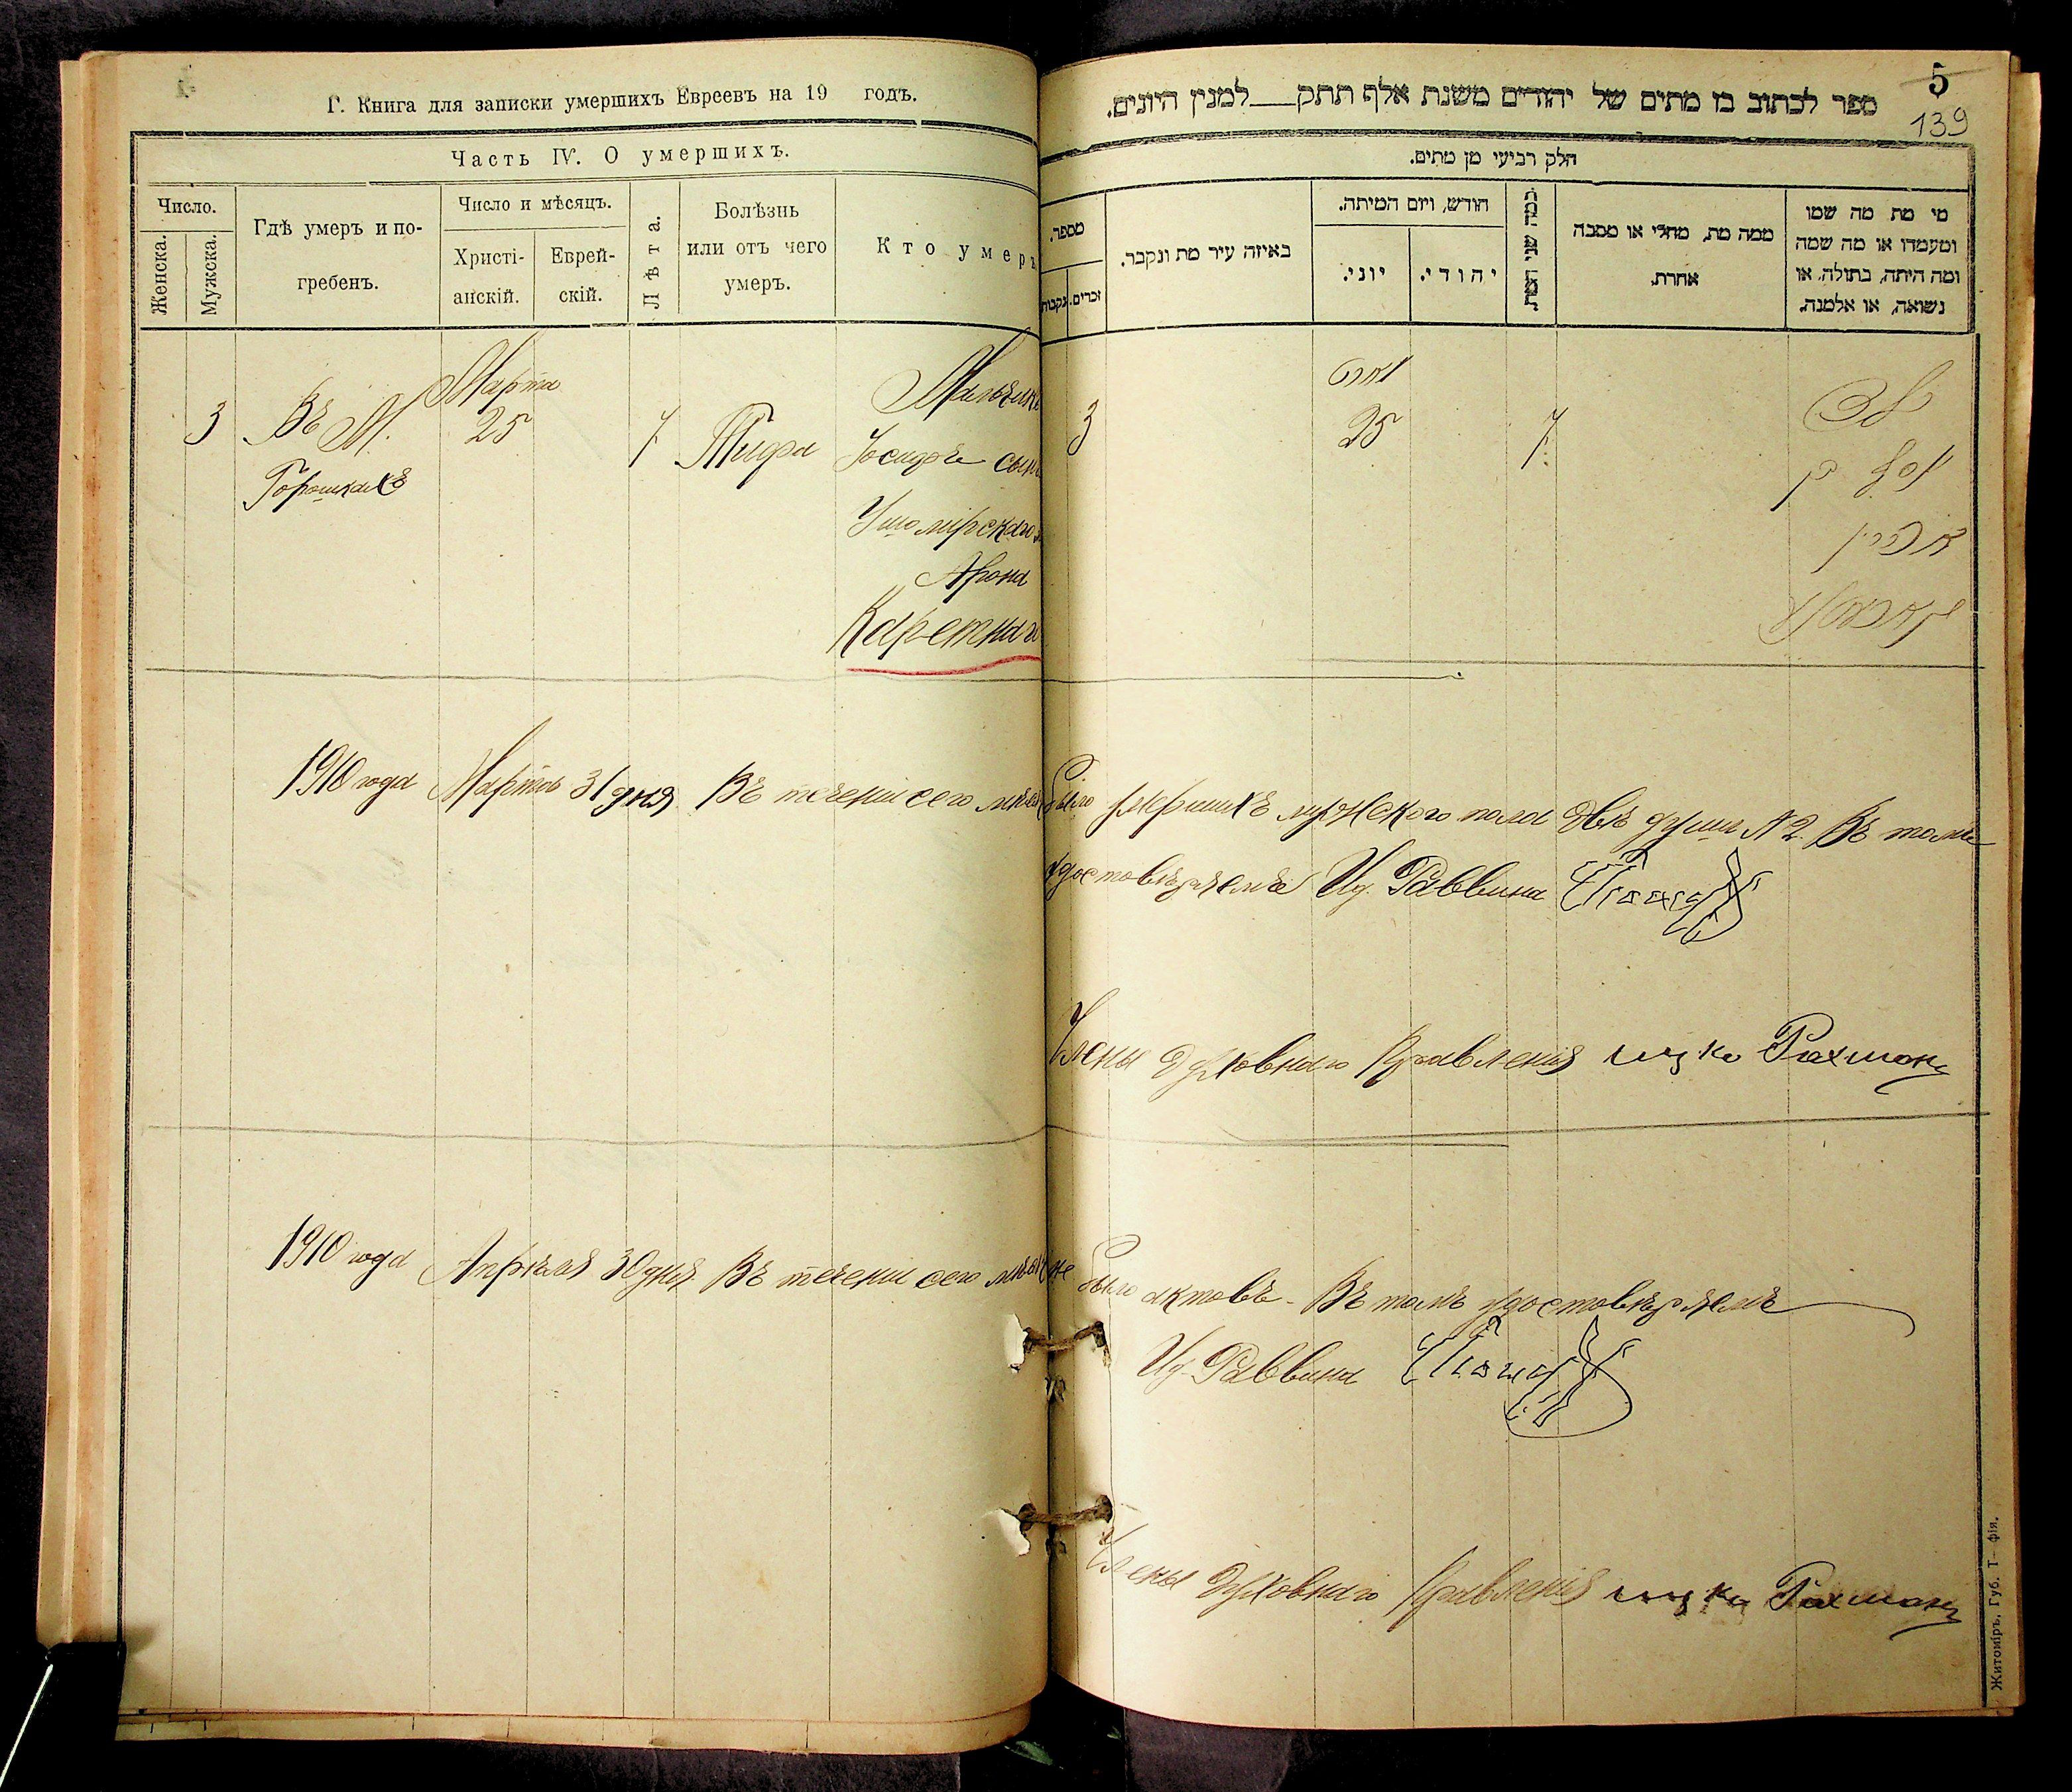 Г. Книга для записки умершихъ Евреевъ на 19 годъ.
Часть IV. О умершихъ.
Число.
Женска.
Мужска.
Гдѣ умеръ и по-
гребенъ.
Число и мѣсяцъ.
Христі-
анскій.
Еврей-
скій.
Лѣта.
Болѣзнь
или отъ чего
умеръ.
Кто умеръ
Марта
Мальчикъ
3 Въ М. 25 7 Тифа Іосифъ сынъ
Горошкахъ
Ушомірскаго
Арона
Каретнаго
1910 года Марта 31 дня. Въ теченіи сего
1910 года Апрѣля 30 дня. Въ теченіи сего
5
139
ספר לכתוב בו מתים של יהודים משנת אלף תתק למנין היונים.
חלק רביעי מן מתים.
מספר.
נקבות
זכרים.
באיזה עיר מת ונקבר.
חודש, ויום המיתה.
יוני.
יהודי.
כמה שני המת.
ממה מת, מחלי או מסבה
אחרת.
מי מת מה שמו
ומעמדו או מה שמה
ומה היתה, בתולה, או
נשואה, או אלמנה.
מארט
3 25 7
יוסף בן
אהרן
было умершихъ мужского пола двѣ души № 2 Въ томъ
удостовѣряемъ Ид. Раввина
Члены Духовнаго Правленія ицко Рахманъ
не было актовъ - Въ томъ удостовѣряемъ
Ид. Раввина
Члены Духовнаго Правленія ицко Рахманъ
Житоміръ, Губ. Т—фія.